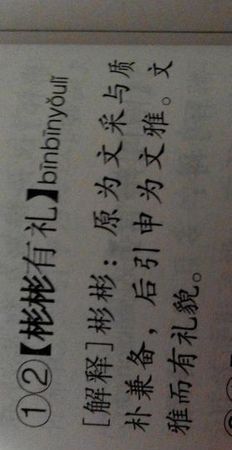 ①②【彬彬有礼】bīnbīnyǒulǐ
[解释]彬彬：原为文采与质
朴兼备，后引申为文雅。文
雅而有礼貌。